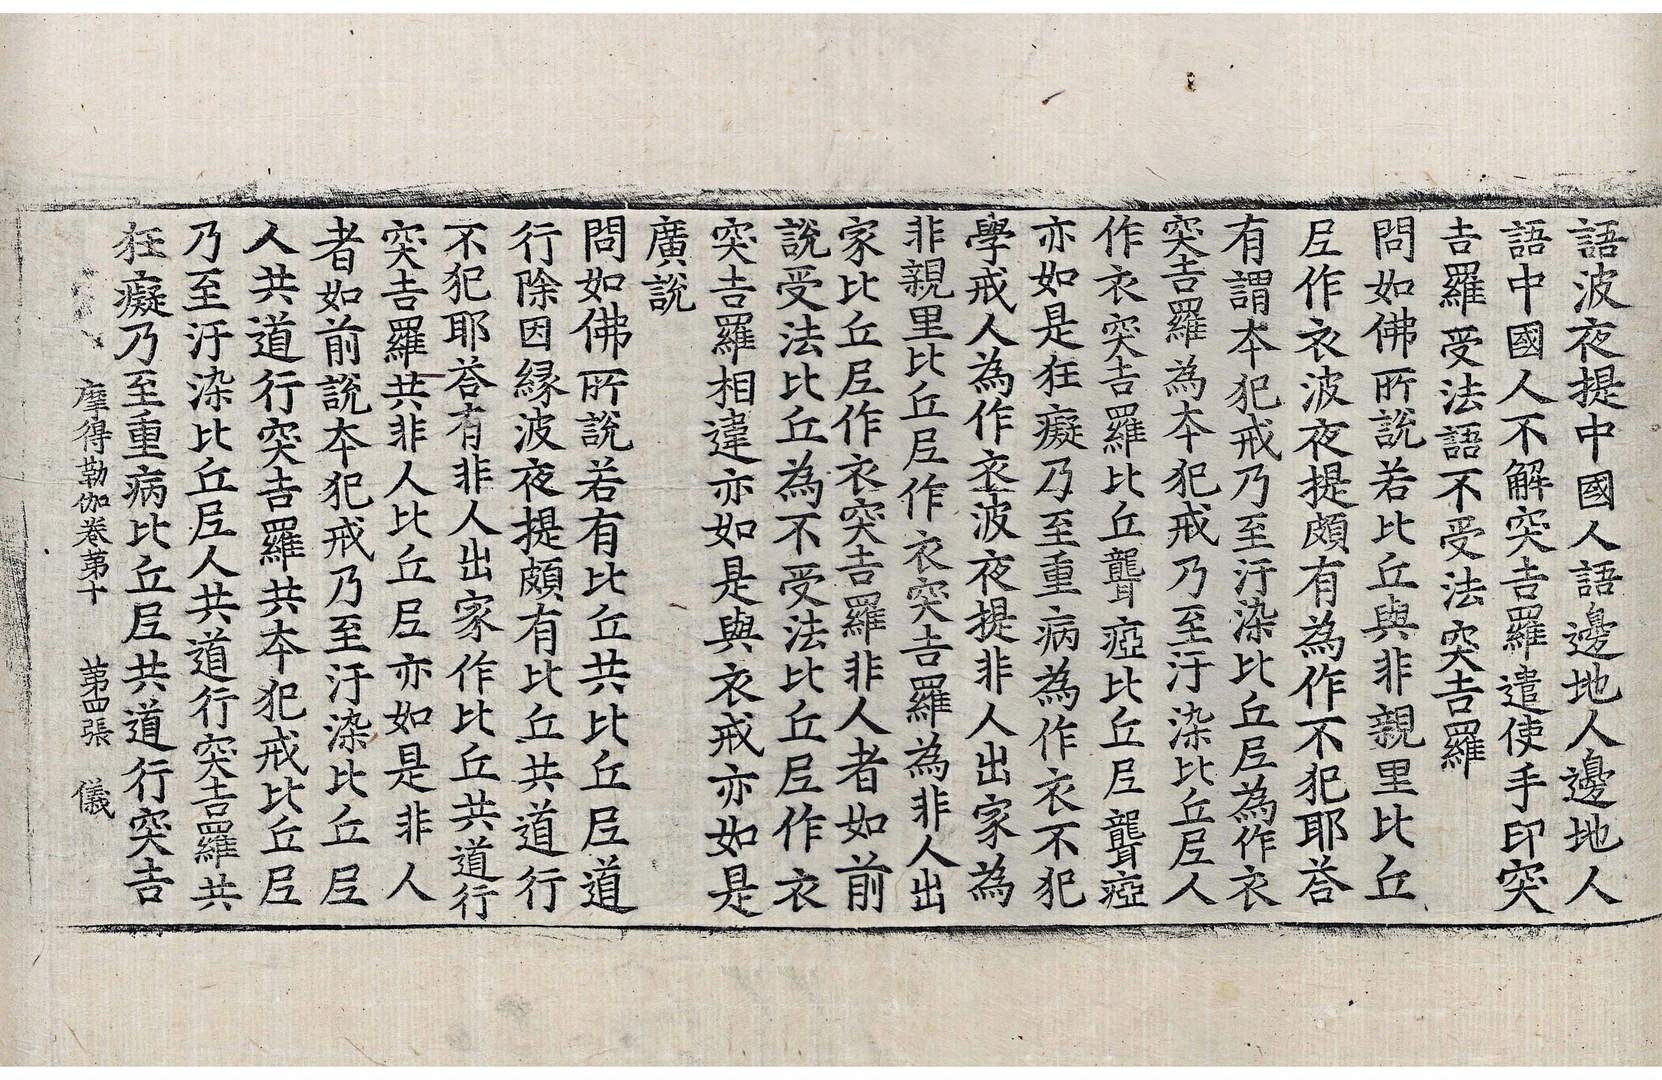 語波夜提中國人語邊地人邊地人
語中國人不解突吉羅遣使手印突
吉羅受法語不受法突吉羅
問如佛所說若比丘與非親里比丘
尼作衣波夜提頗有為作不犯耶荅
有謂本犯戒乃至汙染比丘尼為作衣
突吉羅為本犯戒乃至汙染比丘尼人
作衣突吉羅比丘聾瘂比丘尼聾瘂
亦如是狂癡乃至重病為作衣不犯
學戒人為作衣波夜提非人出家為
非親里比丘尼作衣突吉羅為非人出
家比丘尼作衣突吉羅非人者如前
說受法比丘為不受法比丘尼作衣
突吉羅相違亦如是與衣戒亦如是
廣說
問如佛所說若有比丘共比丘尼道
行除因緣波夜提頗有比丘共道行
不犯耶荅有非人出家作比丘共道行
突吉羅共非人比丘尼亦如是非人
者如前說本犯戒乃至汙染比丘尼
人共道行突吉羅共本犯戒比丘尼
乃至汙染比丘尼人共道行突吉羅共
狂癡乃至重病比丘尼共道行突吉
摩得勒伽卷第十 第四張 儀